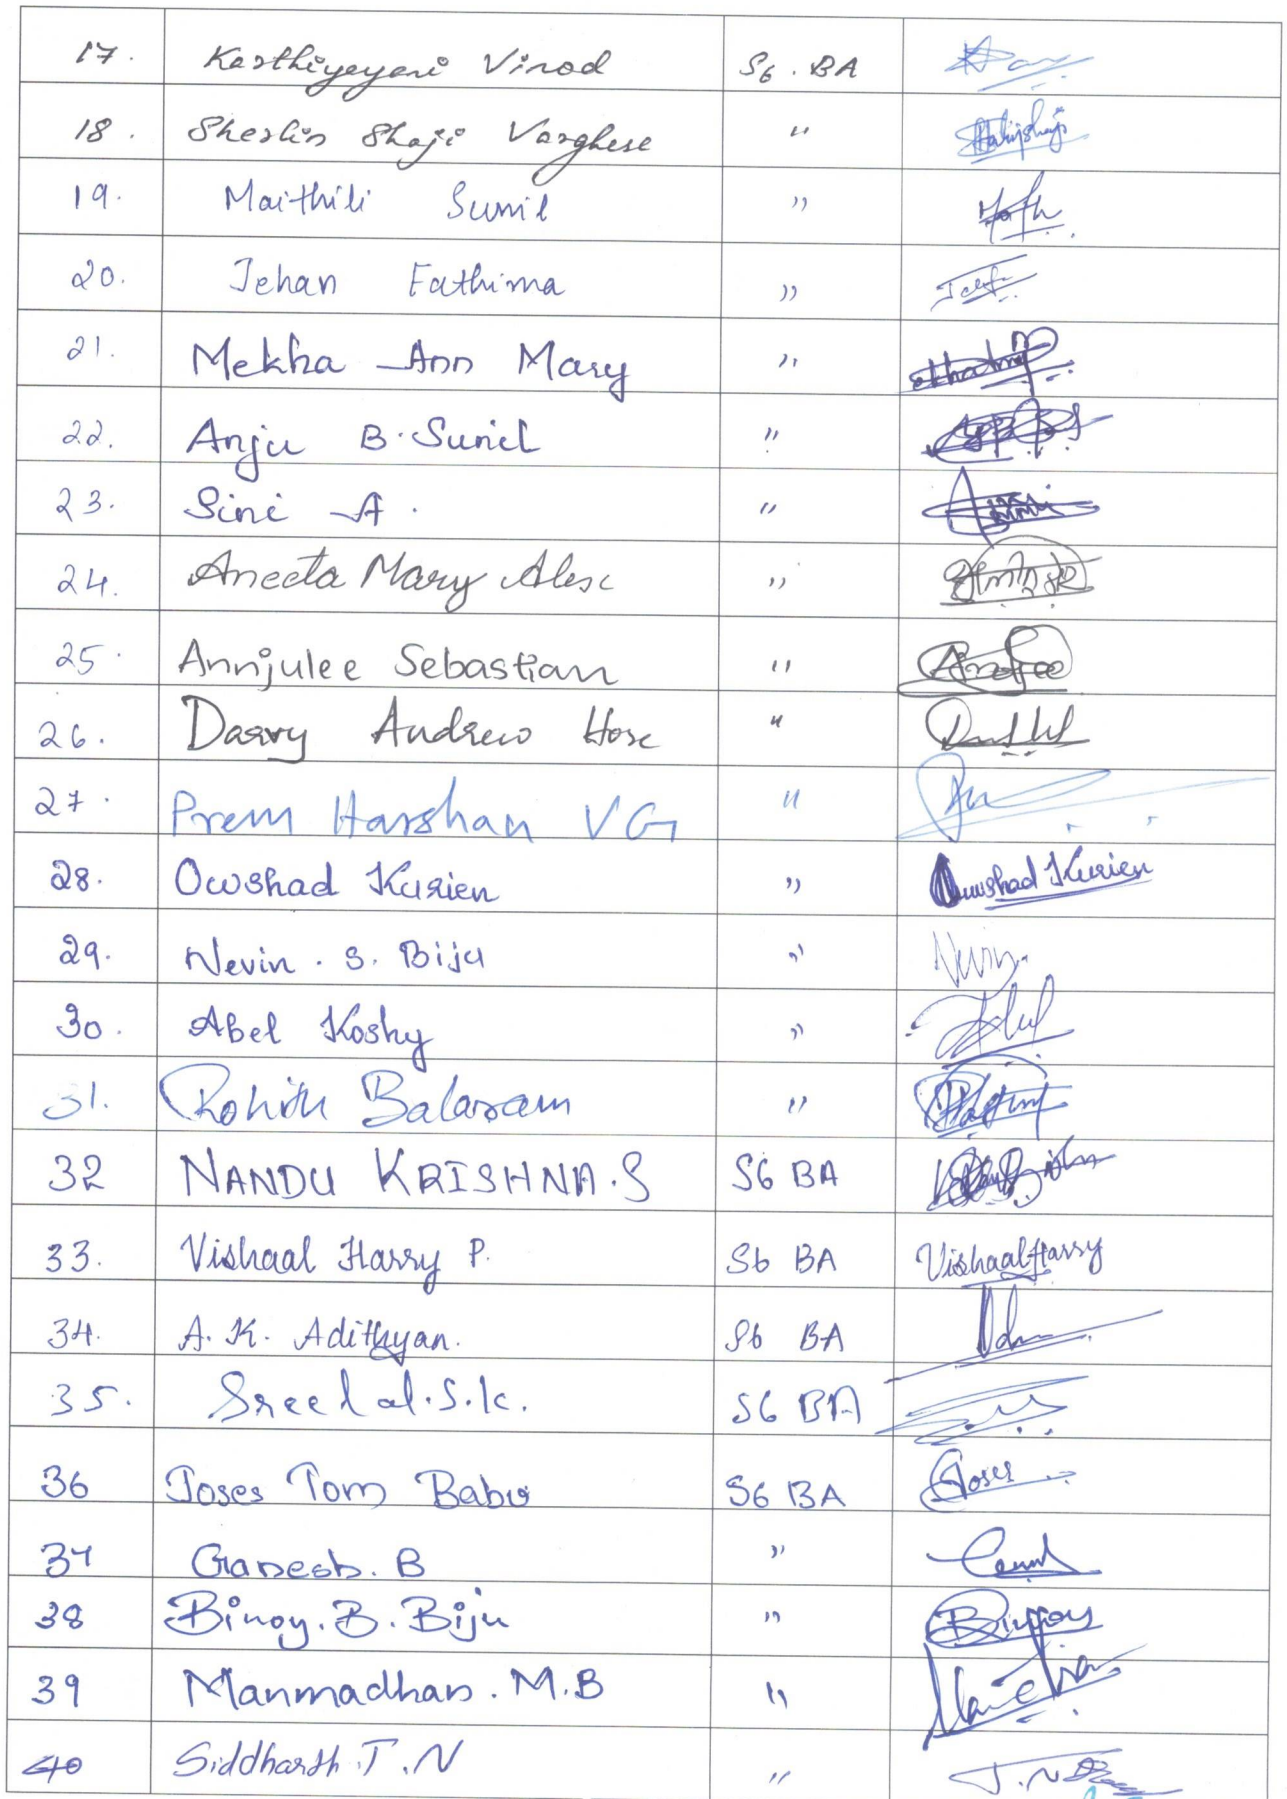 17. Karthiyeyani Vinod S6. BA
18. Sherlin Shaji Varghese "
19. Maithili Sunil "
20. Jehan Fathima "
21. Mekha Ann Mary "
22. Anju B. Sunil "
23. Sini A. "
24. Aneeta Mary Alex "
25. Annjulee Sebastian "
26. Darvy Andrew Hose "
27. Prem Harshan VG "
28. Owshad Kurien " Owshad Kurien
29. Nevin. S. Biju " Nevin
30. Abel Koshy " Abel
31. Rohith Balaram "
32 NANDU KRISHNA.S S6 BA
33. Vishaal Harry P. S6 BA Vishaal Harry
34. A. K. Adithyan. S6 BA
35. Sreelal.S.K. S6 BA
36 Joses Tom Babu S6 BA Joses
37 Ganesh. B "
38 Binoy. B. Biju " Binoy
39 Manmadhan. M.B "
40 Siddharth.T.N "